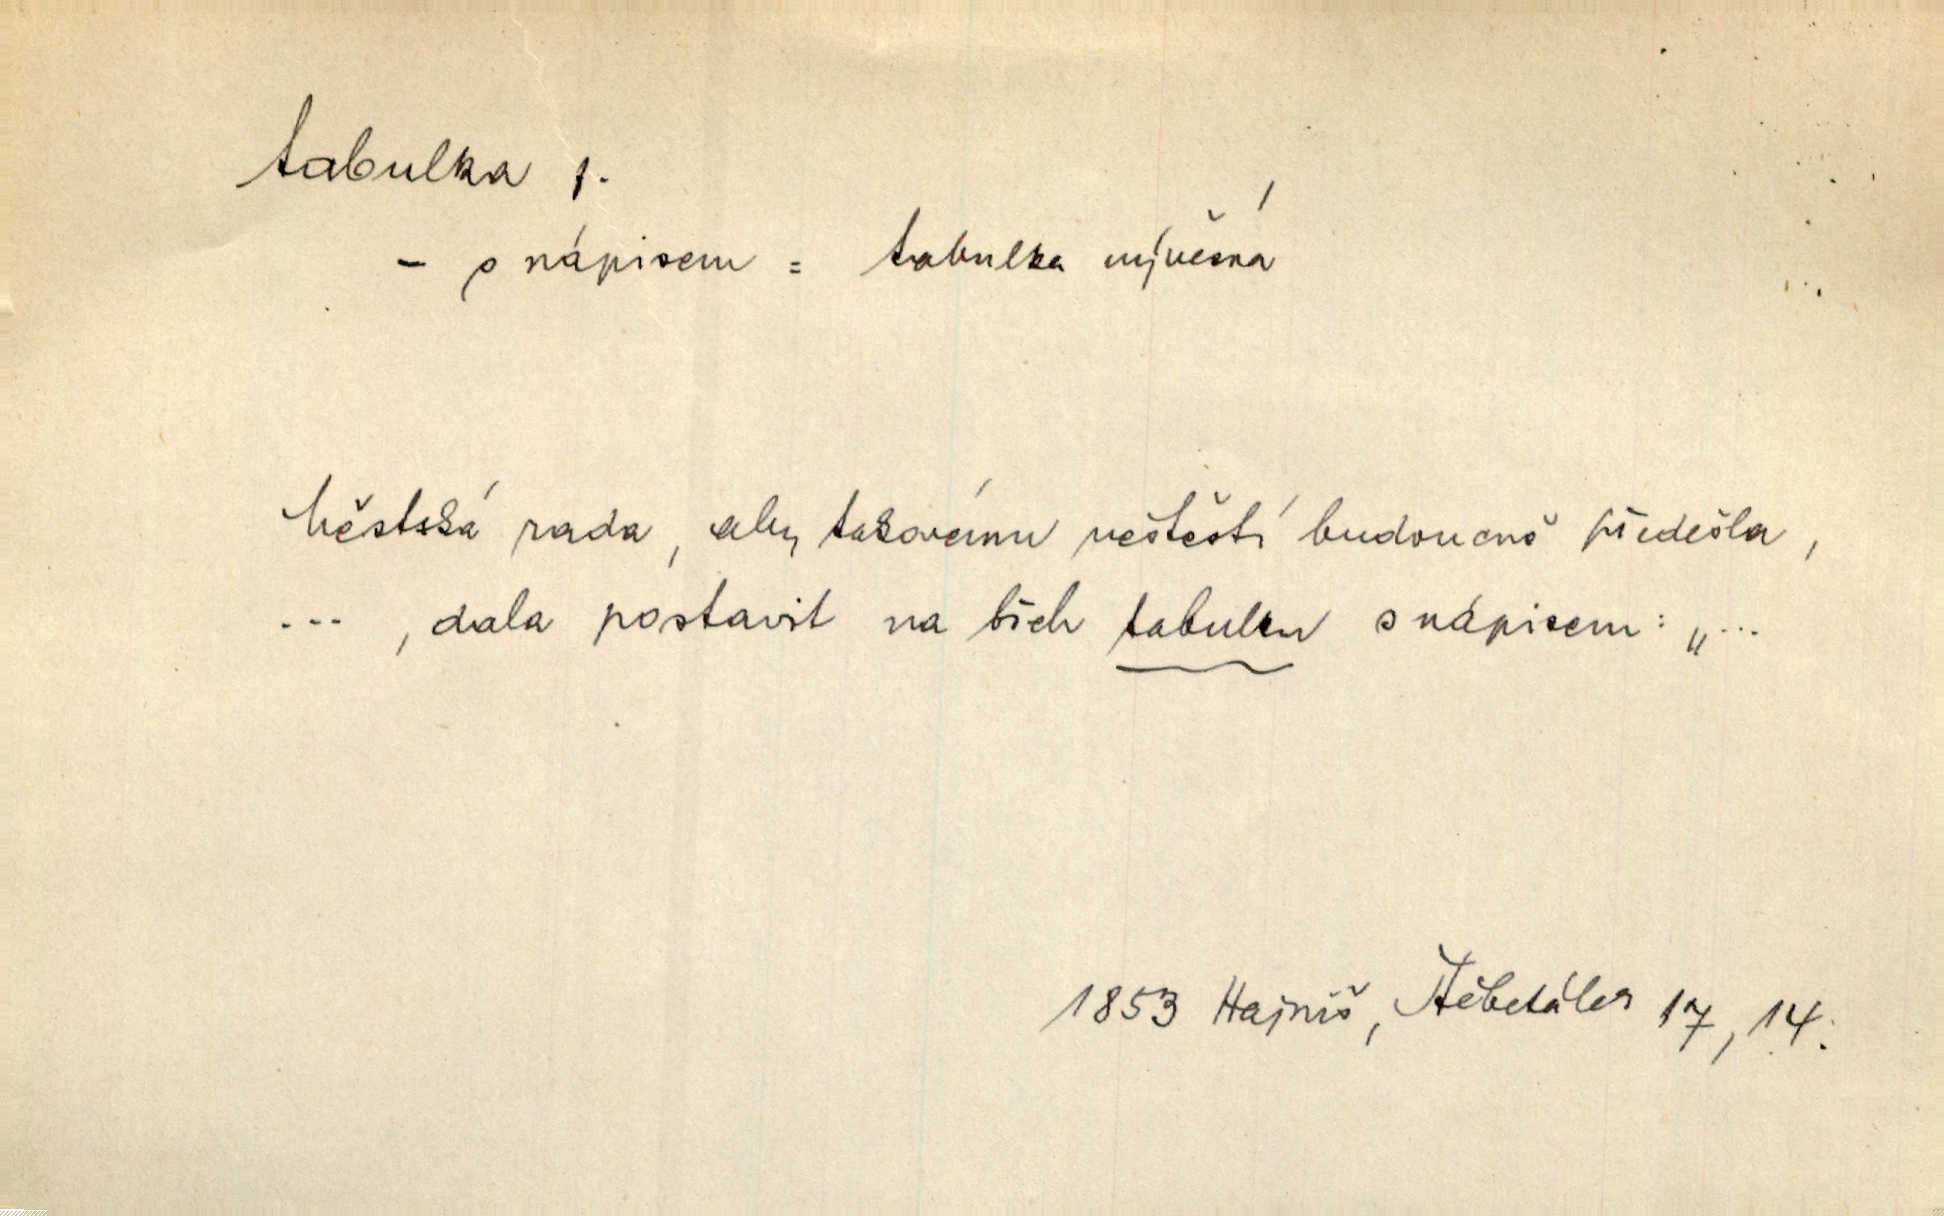 tabulka f.
– s nápisem = tabulka vývěsná
Městská rada, aby takovému neštěstí budoucně předešla,
... , dala postavit na břeh tabulku s nápisem: „...
1853 Hajniš, Třebetáles 17, 14.